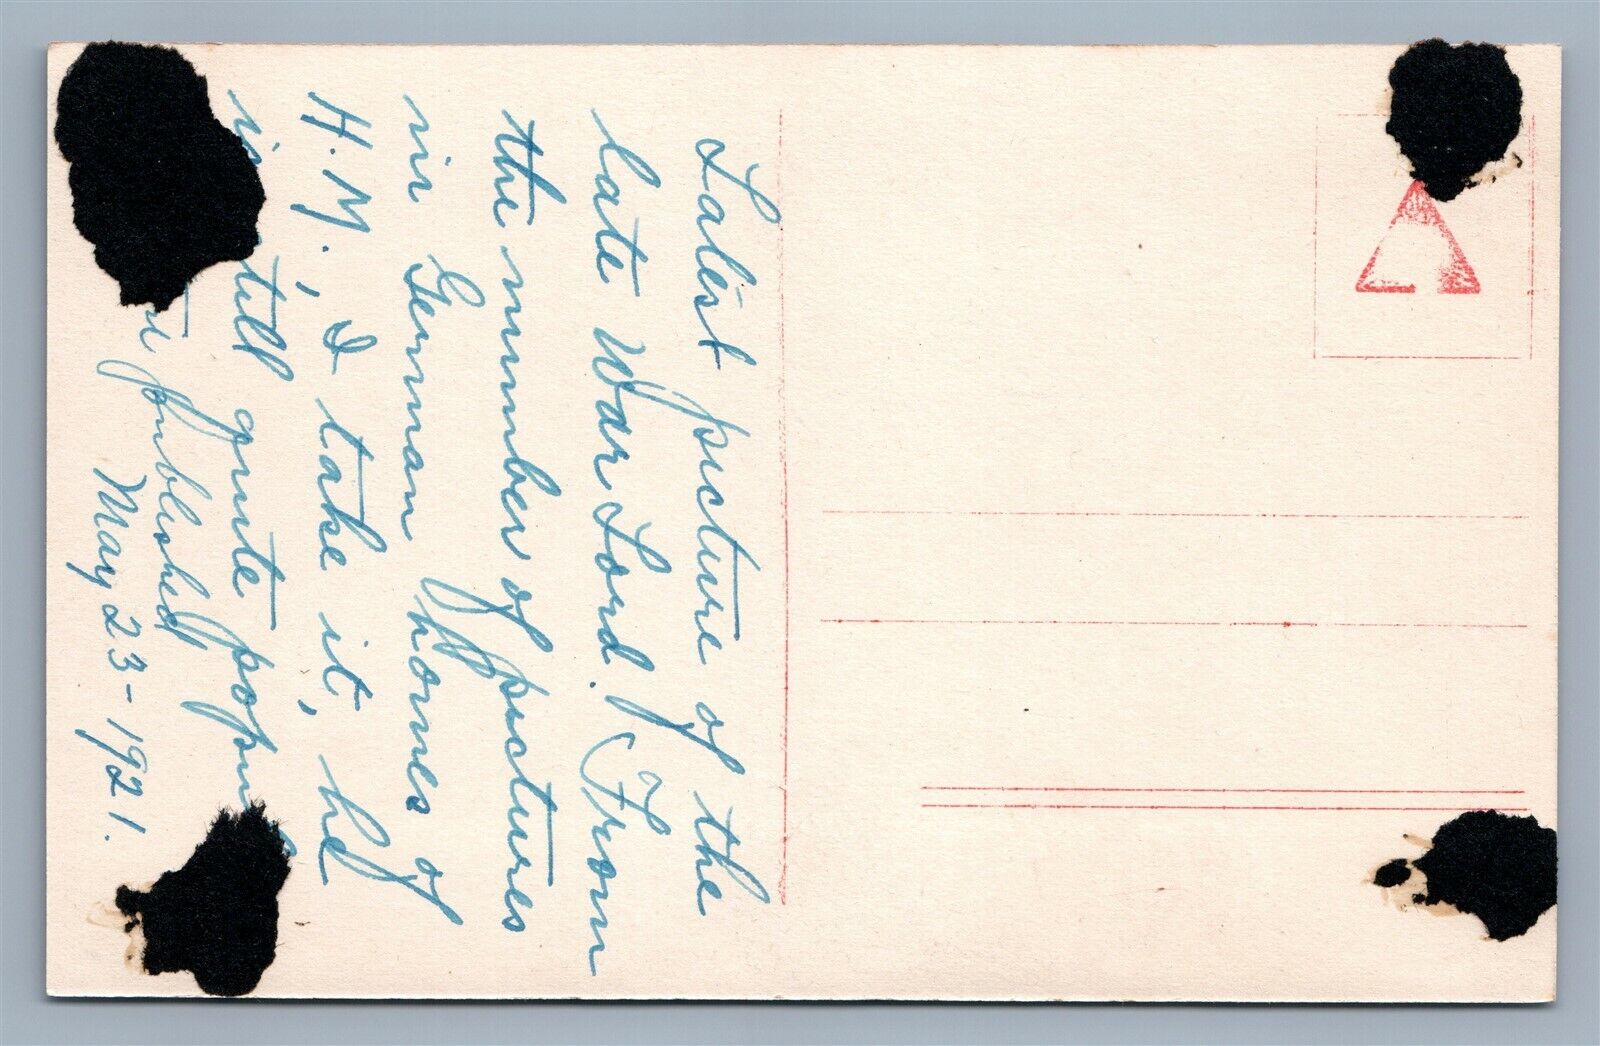 Latest picture of the
late War Lord. (From
the number of pictures
in German homes of
H. M., I take it, he
is still quite popu
published
May 23-1921.